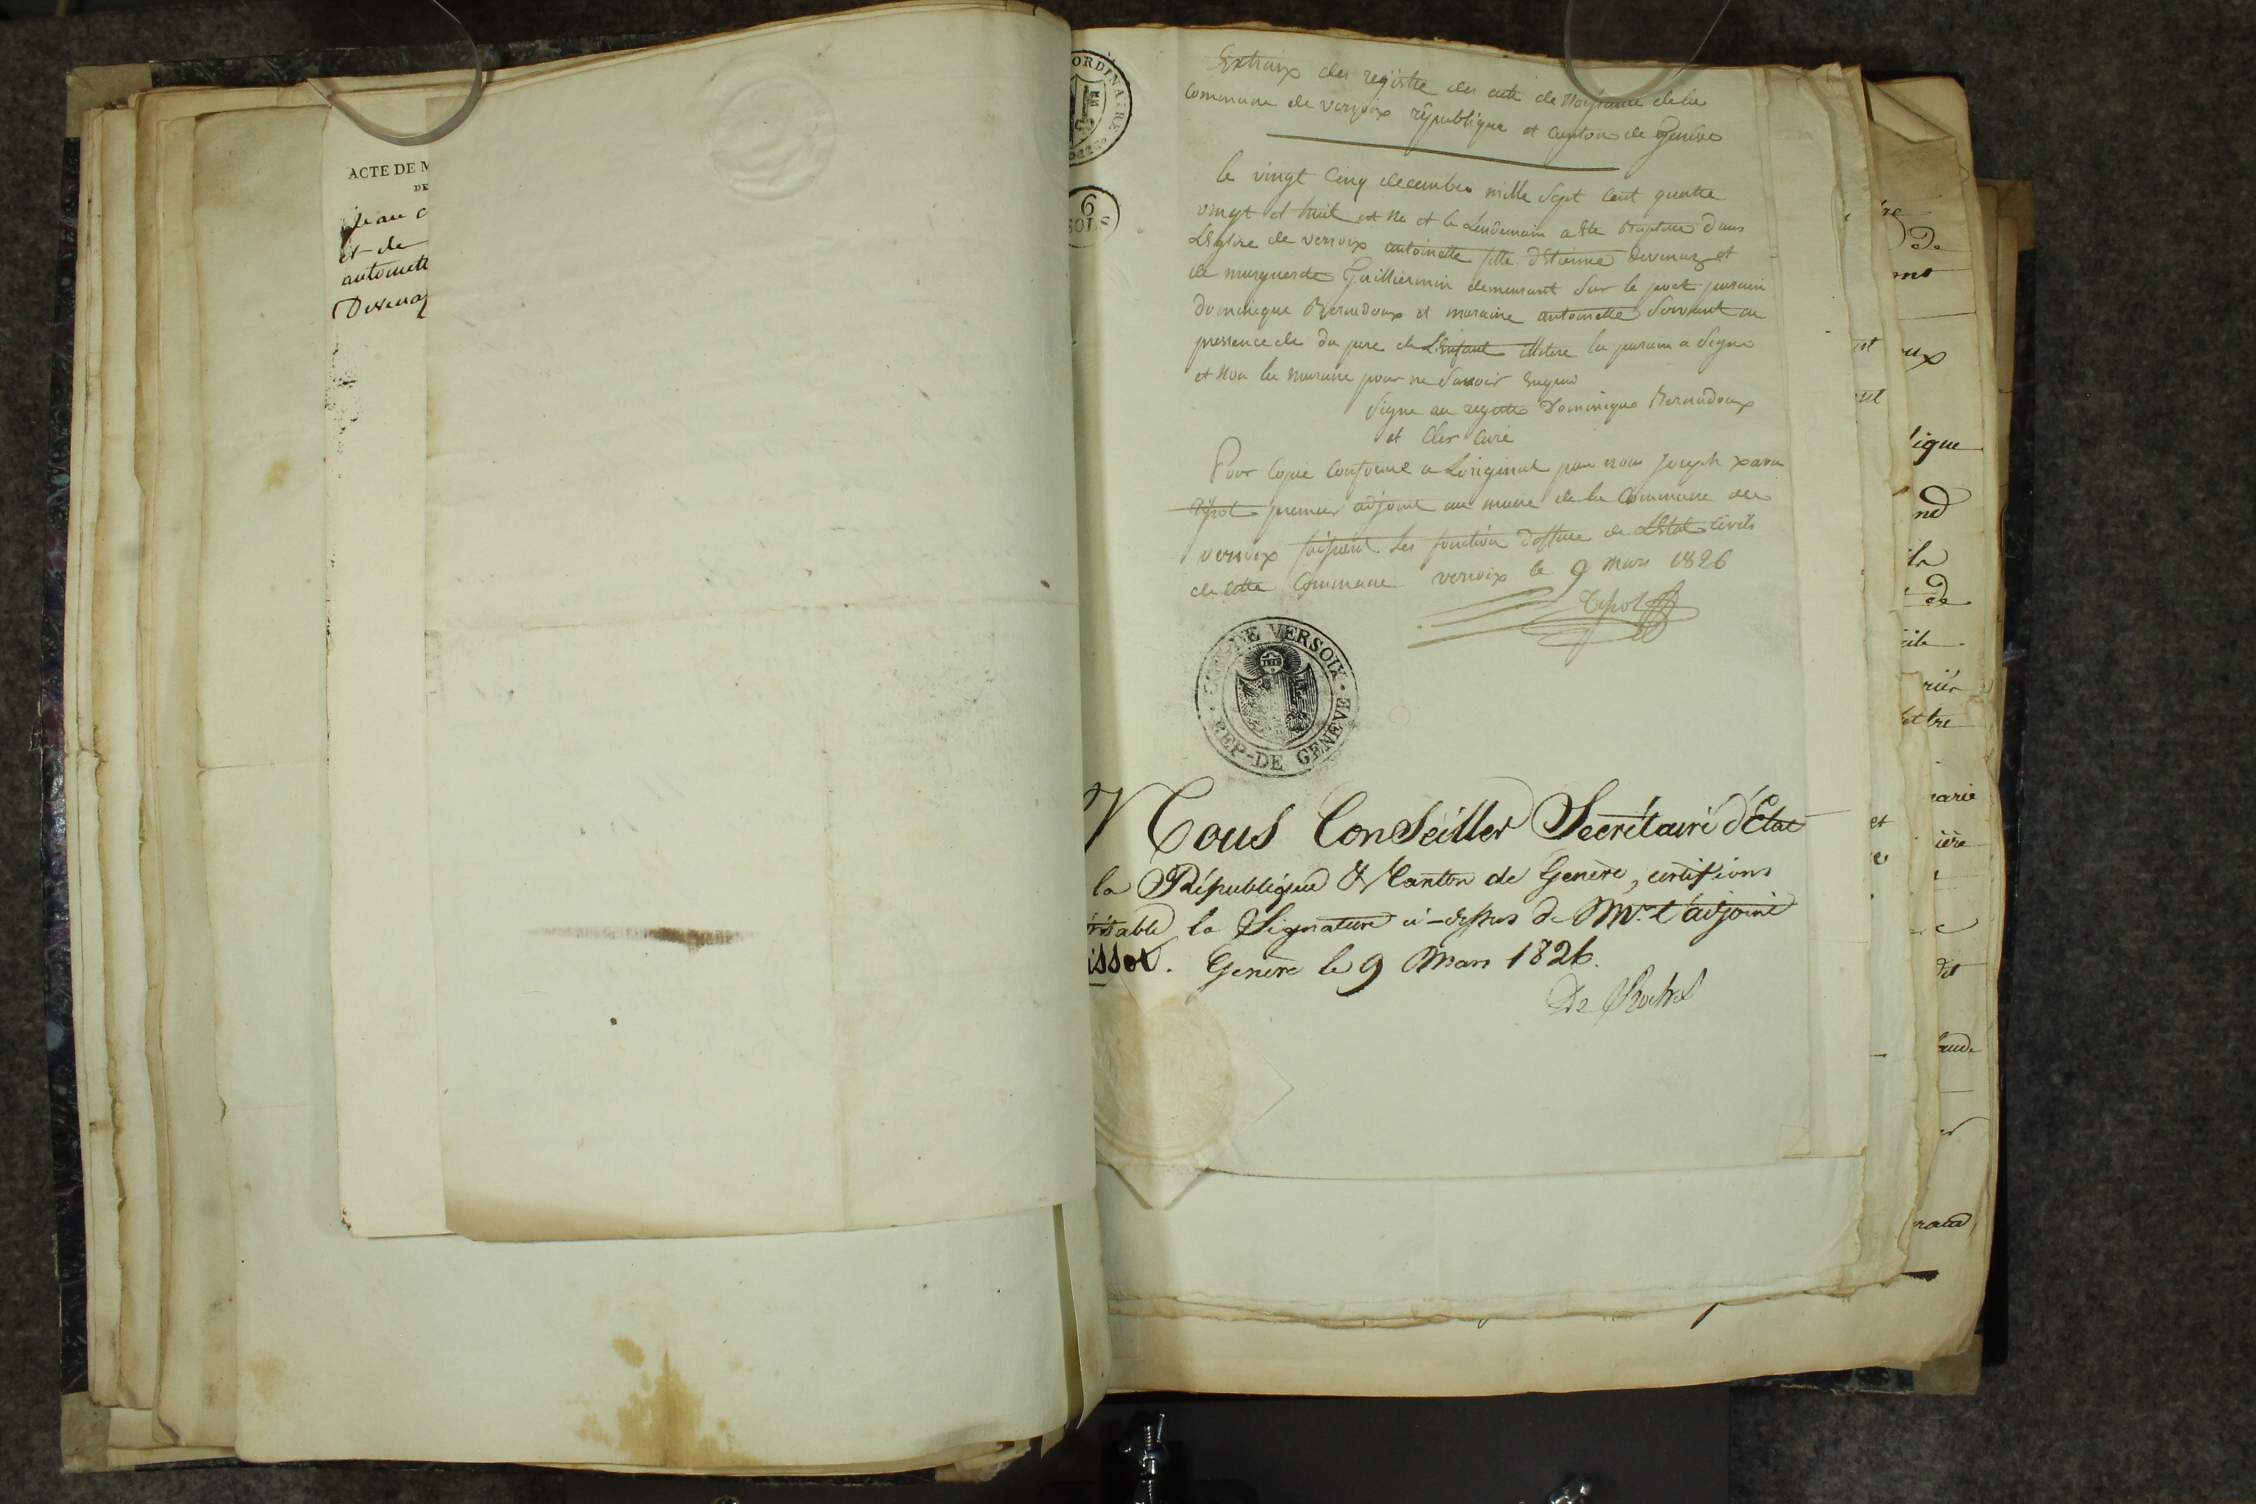 ACTE DE M
DE
Jean C
et de
antoinett
Devenaz
ORDINAIRE
6
SOLS
Extraix des registre des acte de Naissance de la
Commune de versoix république et canton de Genève
le vingt Cinq decembre mille Sept Cent quatre
vingt et huit est né et le Lendemain a Ete Baptisé dans
L'Eglise de versoix antoinette fille d'Etienne devenaz et
de marguerite Guilliermin demeurant Sur le port parain
Dominique Bernadoux et maraine antoinette Servant en
pressence de du pere de L'Enfant le parain a Signe
et Non la maraine pour ne Savoir
Signe au registre Dominique Bernadoux
et Curé
Pour Copie Conforme a Loriginal par nous Joseph
premier adjoint au maire de la Commune de
versoix faisant les fonction de Lestat Civils
de Cette Commune versoix le 9 mars 1826
COM-DE VERSOIX
REP-DE GENEVE
Nous Conseiller Secrétaire d'Etat
la République & Canton de Genève, certifions
ritable la Signature ci-dessus de Mr. l'adjoint
issot. Genève le 9 Mars 1826.
De
re
de
ux
igue
nd
la
de
rié
ttre
arie
ière
et